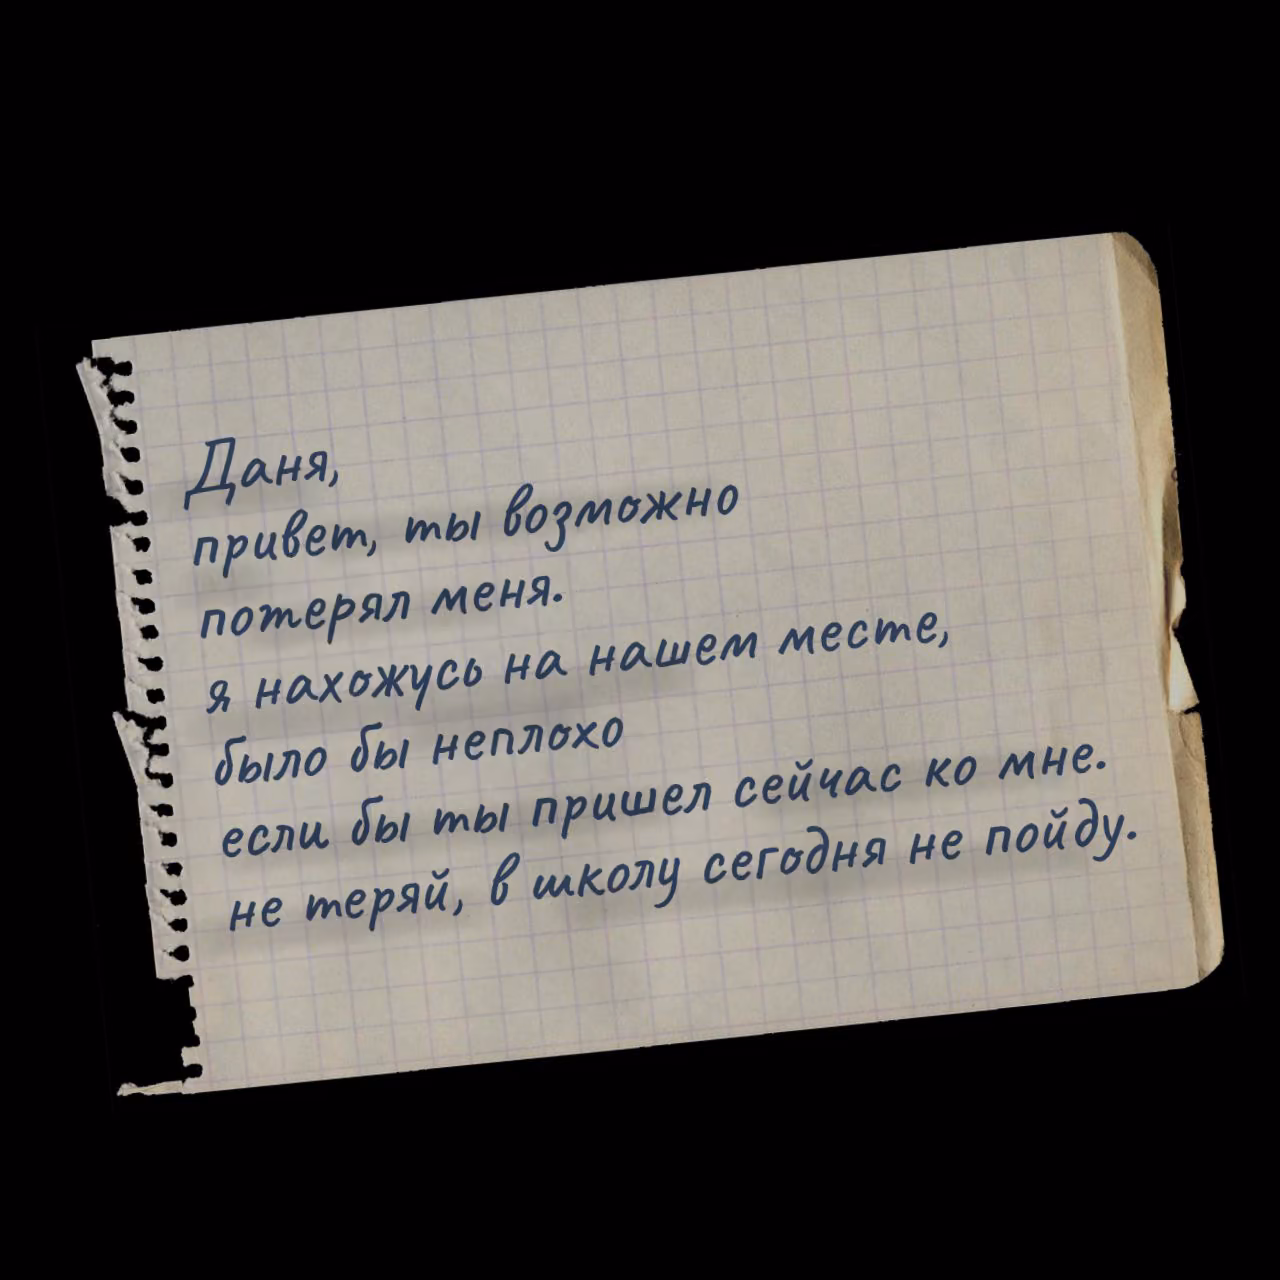 Даня,
привет, ты возможно
потерял меня.
я нахожусь на нашем месте,
было бы неплохо
если бы ты пришел сейчас ко мне.
не теряй, в школу сегодня не пойду.